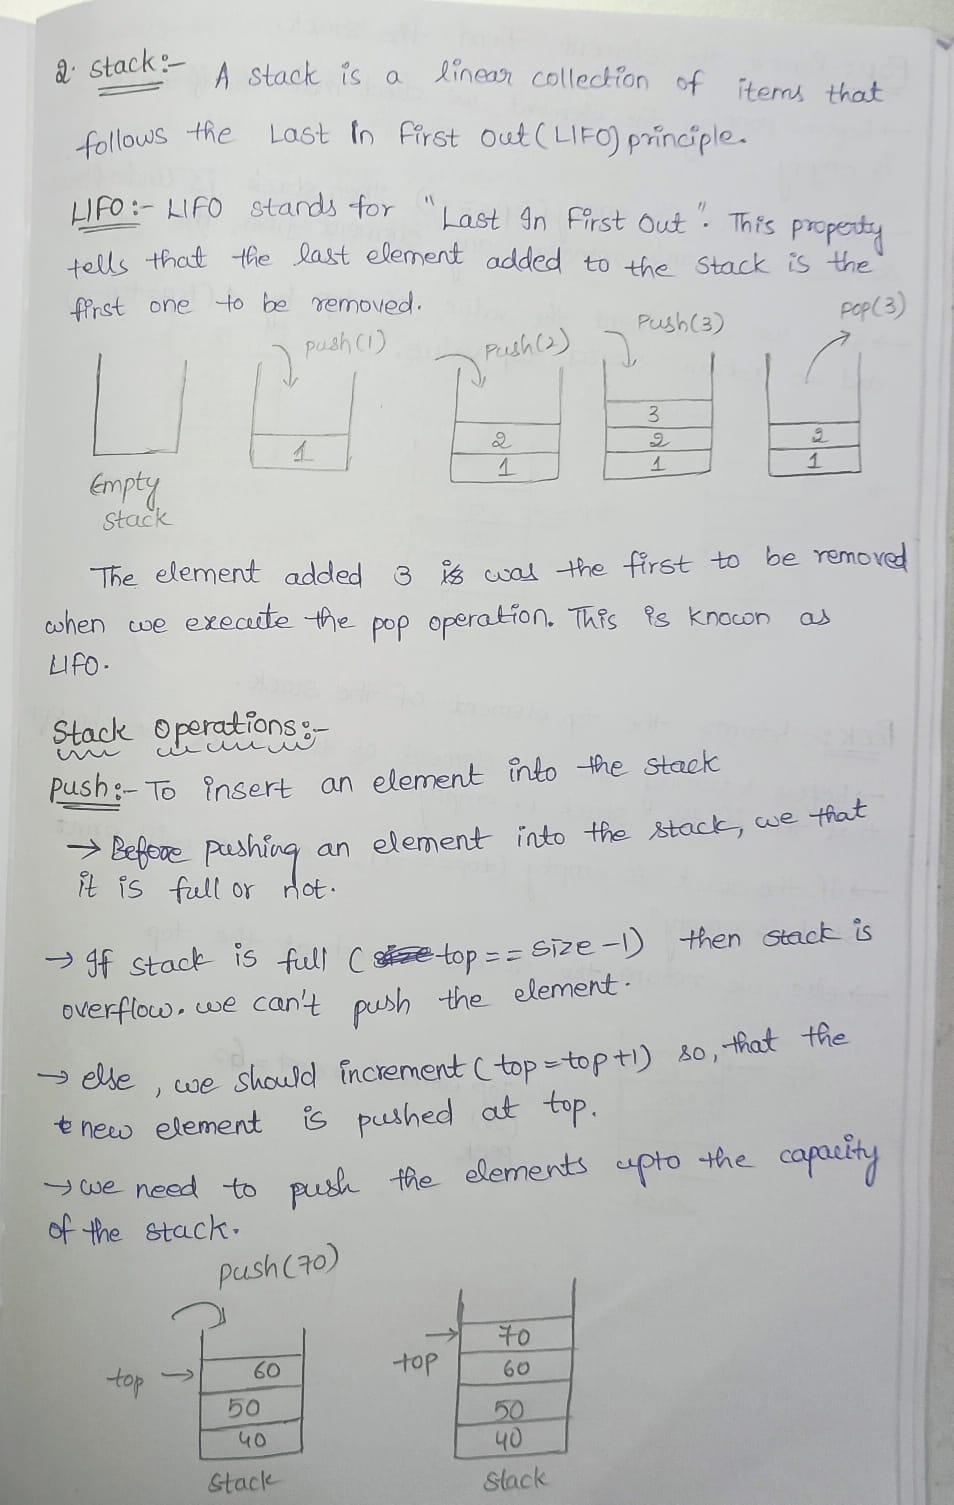 2. Stack :-  A stack is a linear collection of items that
follows the Last In First Out (LIFO) principle.
LIFO :- LIFO stands for "Last In First Out". This property
tells that the last element added to the stack is the
first one to be removed.
push(1) push(2) Push(3) pop(3)
3
2 2 2
1 1 1 1
Empty
stack
The element added 3 is was the first to be removed
when we execute the pop operation. This is known as
LIFO.
Stack Operations :-
push :- To insert an element into the stack
→ Before pushing an element into the stack, we that
it is full or not.
→ If stack is full (size top == size -1) then stack is
overflow. we can't push the element.
→ else, we should increment (top = top+1) so, that the
t new element is pushed at top.
→ we need to push the elements upto the capacity
of the stack.
push(70)
70
top → 60 top → 60
50 50
40 40
Stack Stack